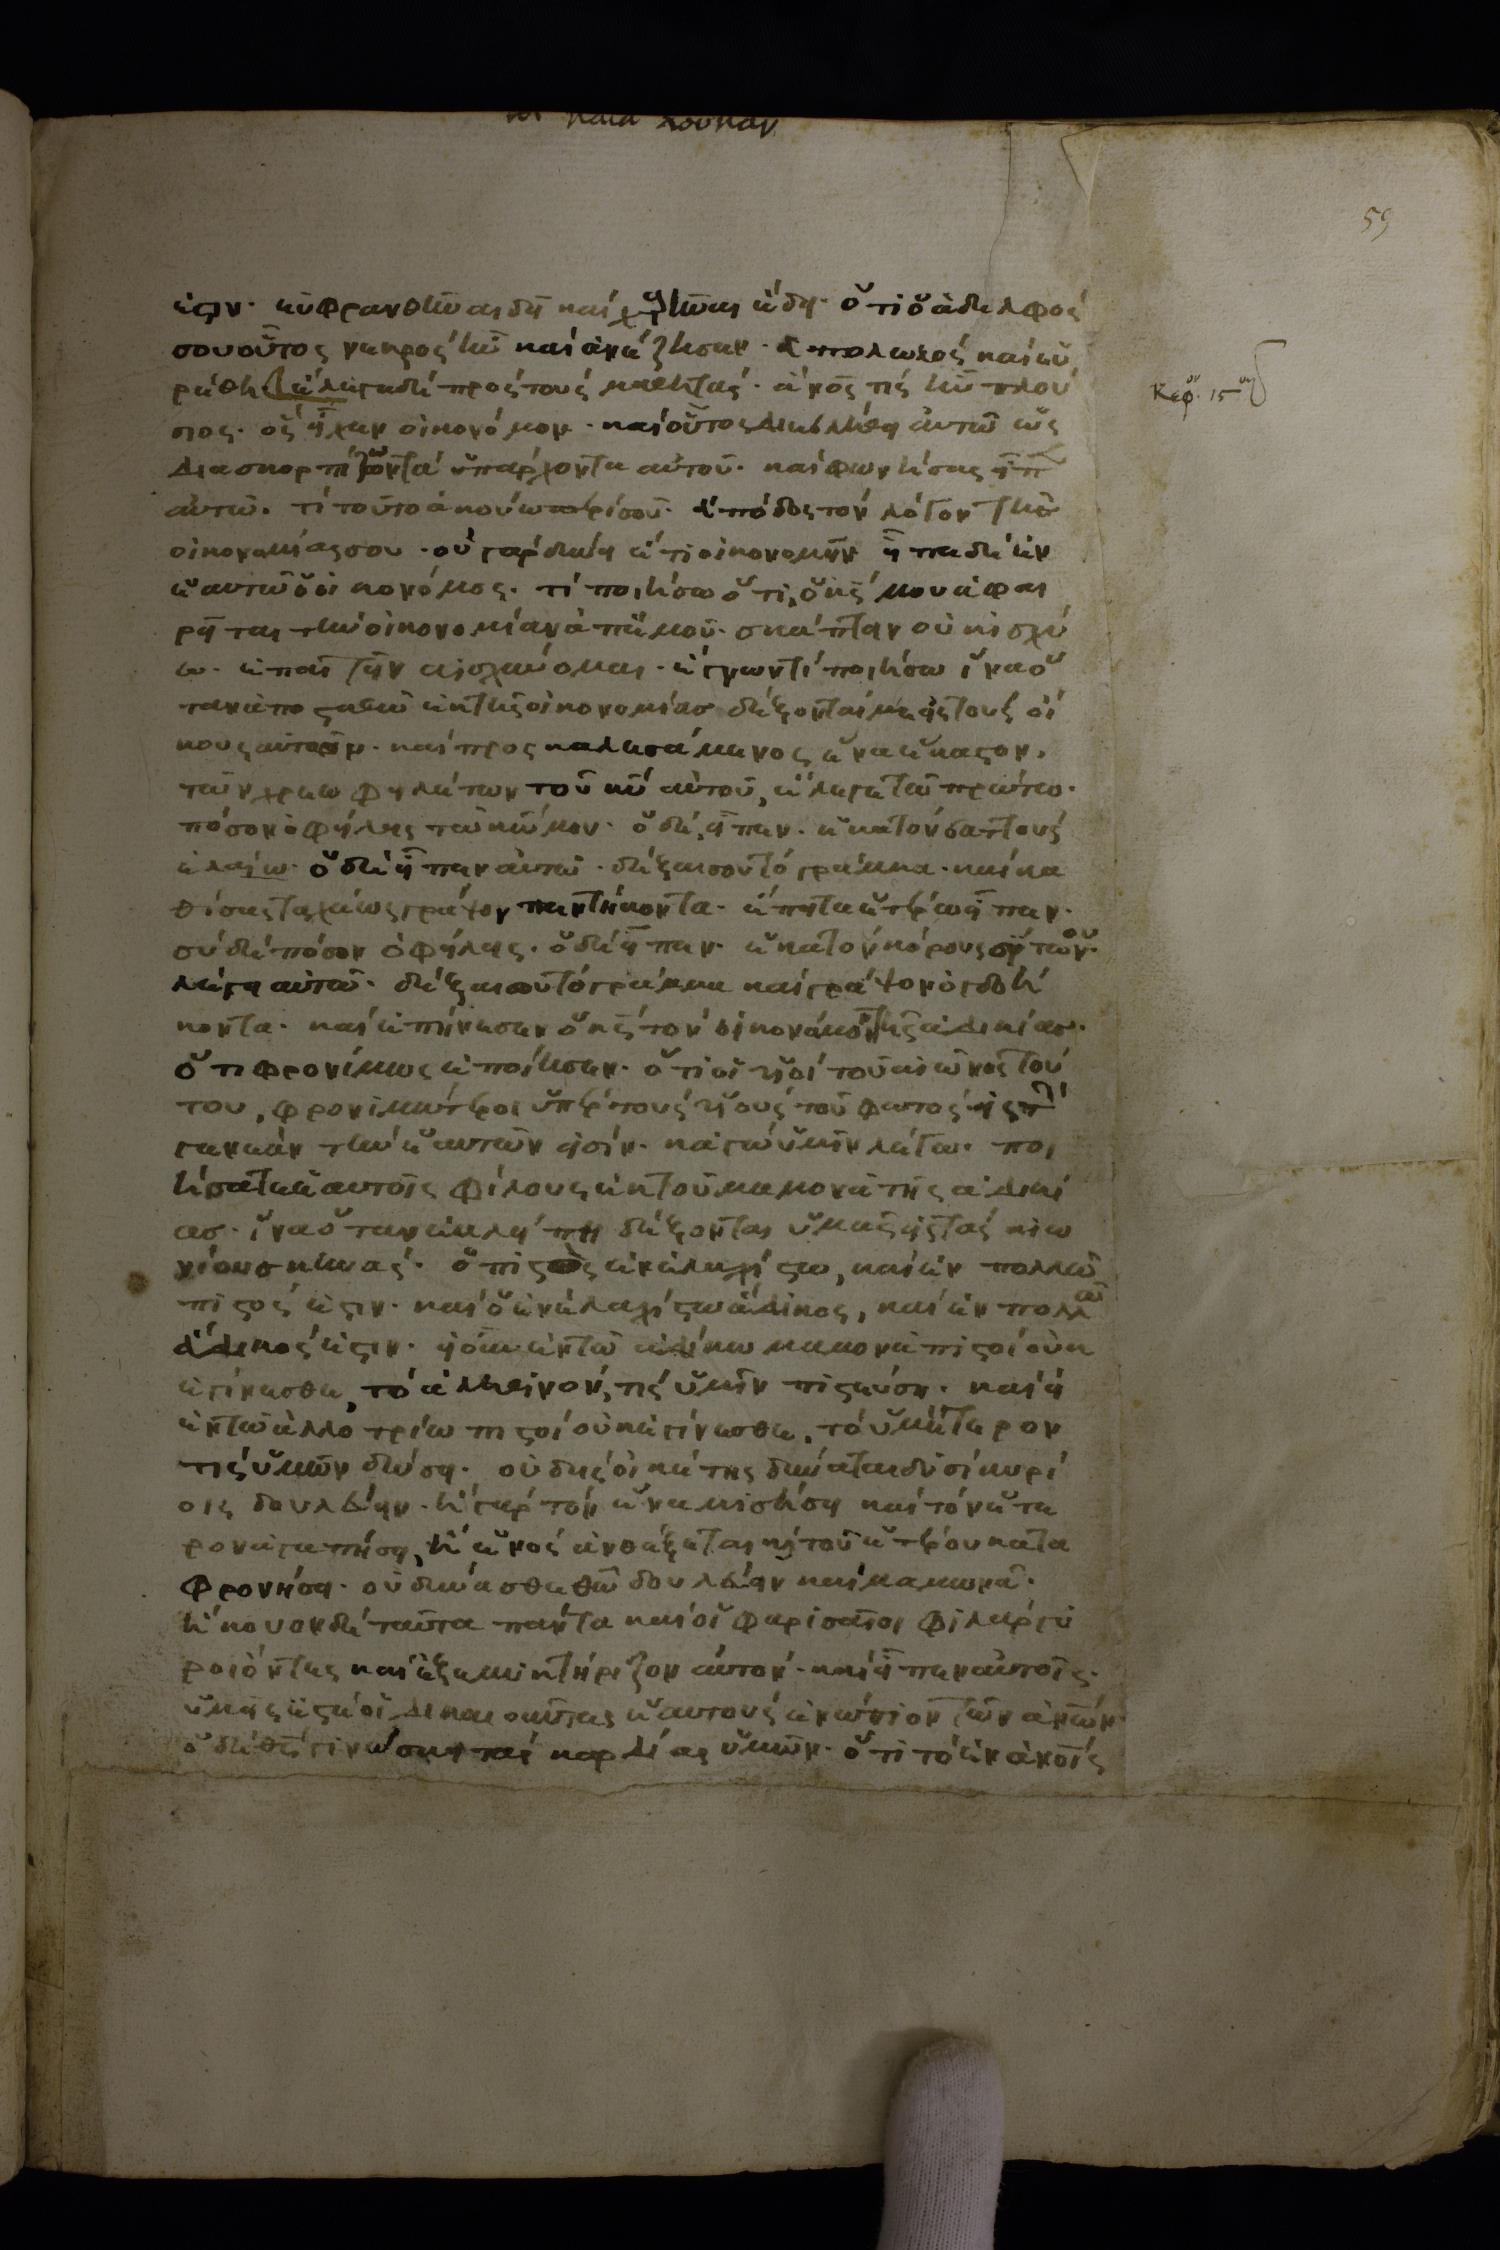 κατὰ λουκᾶν
59
ἐστιν· εὐφρανθῆναι δεῖ καὶ χαρῆναι ἔδει· ὅτι ὁ ἀδελφός
σου οὗτος νεκρὸς ἦν καὶ ἀνέζησεν· ἀπολωλὸς καὶ εὑ
ρέθη ἔλεγε δὲ πρὸς τοὺς μαθητάς· ἄνος τίς ἦν πλού
Κεφ. 15
σιος· ὃς εἶχεν οἰκονόμον· καὶ οὗτος διεβλήθη αὐτῶ ὡς
διασκορπίζων τὰ ὑπάρχοντα αὐτοῦ· καὶ φωνήσας εἶπ
αὐτῶ· τί τοῦτο ἀκούω περὶ σοῦ· ἀπόδος τὸν λόγον τῆς
οἰκονομίας σου· οὐ γὰρ δυνήσει ἔτι οἰκονομεῖν εἶπε δὲ ἐν
ἑαυτῶ ὁ οἰκονόμος· τί ποιήσω ὅτι, ὁ κς μου ἀφαι
ρεῖται τὴν οἰκονομίαν ἀπ' ἐμοῦ· σκάπτειν οὐκ ἰσχύ
ω· ἐπαιτεῖν αἰσχύνομαι· ἔγνων τί ποιήσω ἵνα ὅ
ταν ἀποσταθῶ ἐκ τῆς οἰκονομίας δέξονταί με εἰς τοὺς οἴ
κους αὐτῶν· καὶ προσκαλεσάμενος ἕνα ἕκαστον,
τῶν χρεωφειλέτων τοῦ κυ αὐτοῦ, ἔλεγε τῶ πρώτω·
πόσον ὀφείλεις τῶ κω μου· ὁ δὲ, εἶπεν· ἑκατὸν βάτους
ἐλαίω· ὁ δὲ εἶπεν αὐτῶ· δέξαι σου τὸ γράμμα· καὶ κα
θίσας ταχέως γράψον πεντήκοντα· ἔπειτα ἑτέρω εἶπεν·
σὺ δὲ πόσον ὀφείλεις· ὁ δὲ εἶπεν· ἑκατὸν κόρους σίτου·
λέγει αὐτῶ· δέξαι σου τὸ γράμμα καὶ γράψον ὀγδοή
κοντα· καὶ ἐπήνεσεν ὁ κς τὸν οἰκονόμον τῆς ἀδικίας·
ὅτι φρονίμως ἐποίησεν· ὅτι οἱ υἱοὶ τοῦ αἰῶνος τού
του, φρονιμώτεροι ὑπὲρ τοὺς υἱοὺς τοῦ φωτὸς εἰς τὴν
γενεὰν τὴν ἑαυτῶν εἰσίν· κἀγὼ ὑμῖν λέγω· ποι
ήσατε ἑαυτοῖς φίλους ἐκ τοῦ μαμονᾶ τῆς ἀδικί
ας· ἵνα ὅταν ἐκλείπη δέξονται ὑμᾶς εἰς τὰς αἰω
νίους σκηνάς· ὁ πιστὸς ἐν ἐλαχίστω, καὶ ἐν πολλῶ
πιστός ἐστιν· καὶ ὁ ἐν ἐλαχίστω ἄδικος, καὶ ἐν πολλῶ
ἄδικός ἐστιν· εἰ οὖν ἐν τῶ ἀδίκω μαμονᾶ πιστοὶ οὐκ
ἐγένεσθε, τὸ ἀληθινὸν, τίς ὑμῖν πιστεύσει· καὶ εἰ
ἐν τῶ ἀλλοτρίω πιστοὶ οὐκ ἐγένεσθε, τὸ ὑμέτερον
τίς ὑμῖν δώσει· οὐδεὶς οἰκέτης δύναται δυσὶ κυρί
οις δουλεύειν· ἢ γὰρ τὸν ἕνα μισήσει καὶ τὸν ἕτε
ρον ἀγαπήσει, ἢ ἑνὸς ἀνθέξεται καὶ τοῦ ἑτέρου κατα
φρονήσει· οὐ δύνασθε θῶ δουλεύειν καὶ μαμωνᾶ·
ἤκουον δὲ ταῦτα πάντα καὶ οἱ φαρισαῖοι φιλάργυ
ροι ὄντες καὶ ἐξεμυκτήριζον αὐτόν· καὶ εἶπεν αὐτοῖς·
ὑμεῖς ἐστὲ οἱ δικαιοῦντες ἑαυτοὺς ἐνώπιον τῶν ἀνων·
ὁ δὲ θς γινώσκει τὰς καρδίας ὑμῶν· ὅτι τὸ ἐν ἀνοις